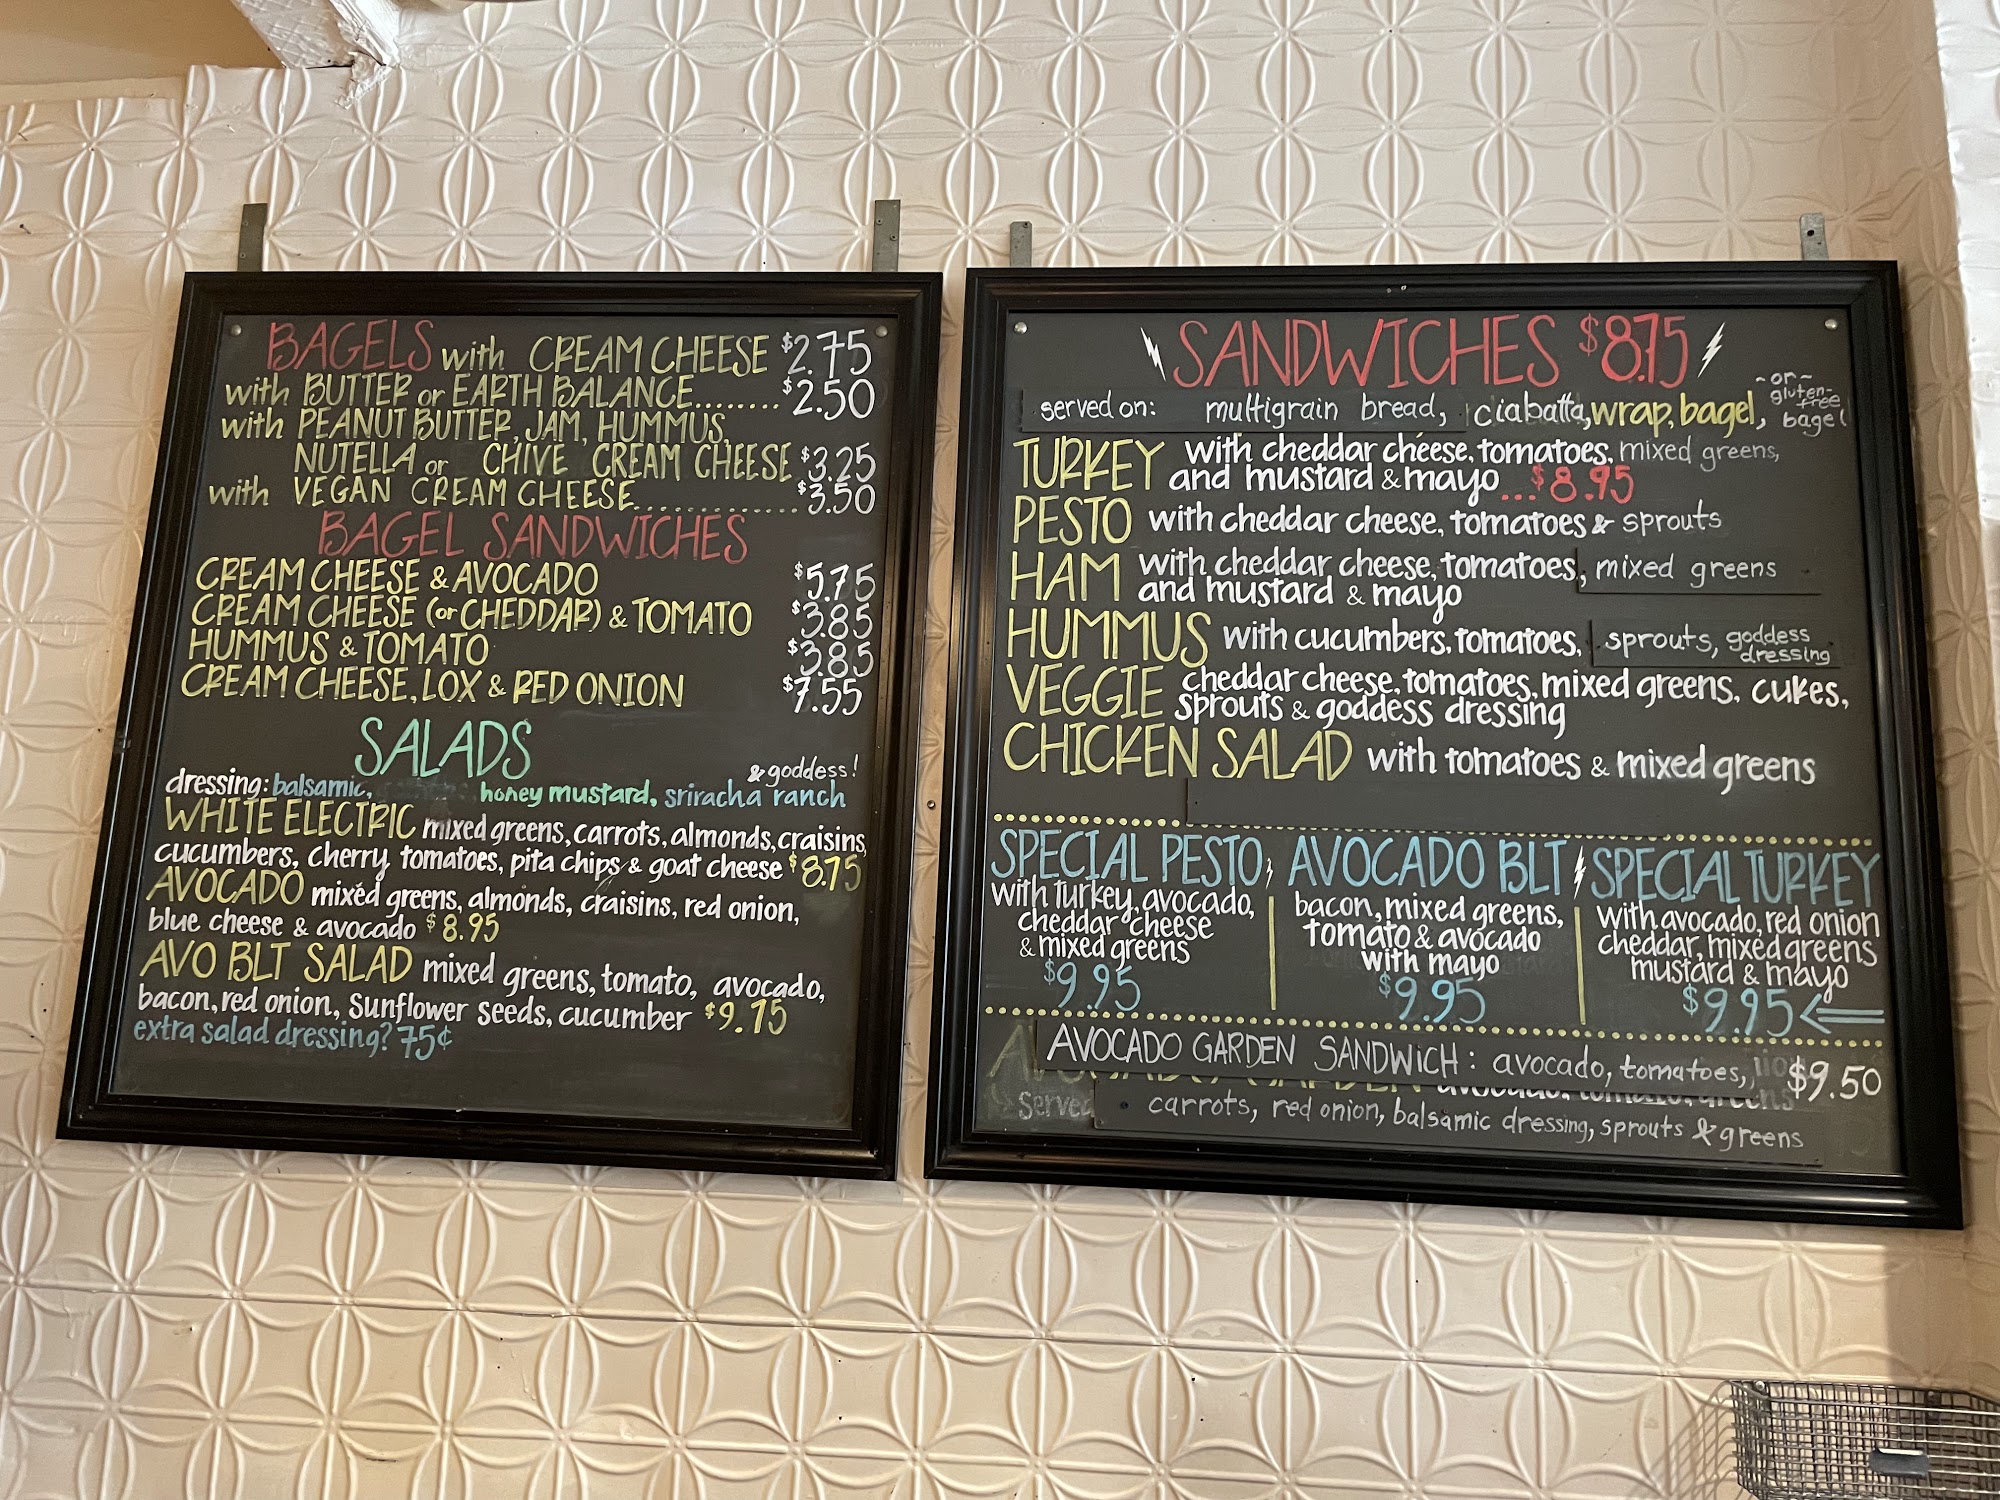 BAGELS with CREAM CHEESE $2.75
with BUTTER or EARTH BALANCE........ $2.50
with PEANUT BUTTER, JAM, HUMMUS,
NUTELLA or CHIVE CREAM CHEESE $3.25
with VEGAN CREAM CHEESE............. $3.50
BAGEL SANDWICHES
CREAM CHEESE & AVOCADO $5.75
CREAM CHEESE (or CHEDDAR) & TOMATO $3.85
HUMMUS & TOMATO $3.85
CREAM CHEESE, LOX & RED ONION $7.55
SALADS
& goddess!
dressing: balsamic, honey mustard, sriracha ranch
WHITE ELECTRIC mixed greens, carrots, almonds, craisins,
cucumbers, cherry tomatoes, pita chips & goat cheese $8.75
AVOCADO mixed greens, almonds, craisins, red onion,
blue cheese & avocado $8.95
AVO BLT SALAD mixed greens, tomato, avocado,
bacon, red onion, sunflower seeds, cucumber $9.75
extra salad dressing? 75¢
SANDWICHES $8.75
served on: multigrain bread, ciabatta, wrap, bagel, ~or~ gluten-free bagel
TURKEY with cheddar cheese, tomatoes, mixed greens,
and mustard & mayo...$8.95
PESTO with cheddar cheese, tomatoes & sprouts
HAM with cheddar cheese, tomatoes, mixed greens
and mustard & mayo
HUMMUS with cucumbers, tomatoes, sprouts, goddess dressing
VEGGIE cheddar cheese, tomatoes, mixed greens, cukes,
sprouts & goddess dressing
CHICKEN SALAD with tomatoes & mixed greens
SPECIAL PESTO
with turkey, avocado,
cheddar cheese
& mixed greens
$9.95
AVOCADO BLT
bacon, mixed greens,
tomato & avocado
with mayo
$9.95
SPECIAL TURKEY
with avocado, red onion
cheddar, mixed greens
mustard & mayo
$9.95
AVOCADO GARDEN SANDWICH: avocado, tomatoes, $9.50
served
carrots, red onion, balsamic dressing, sprouts & greens